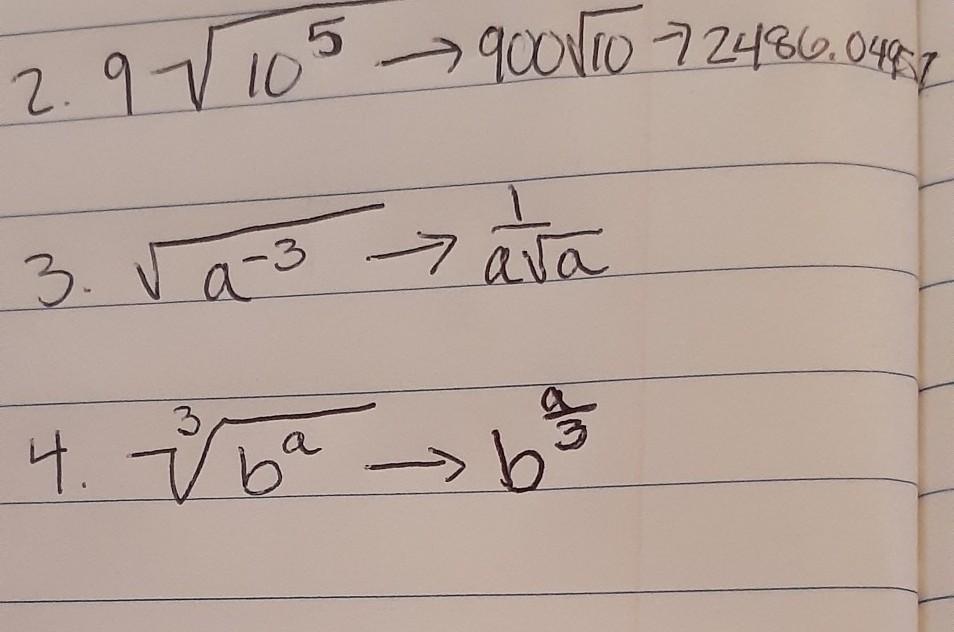 2. 9√10⁵ → 900√10 → 2486.04957
3. √a⁻³ → 1/a√a
4. ³√bᵃ → b^(a/3)